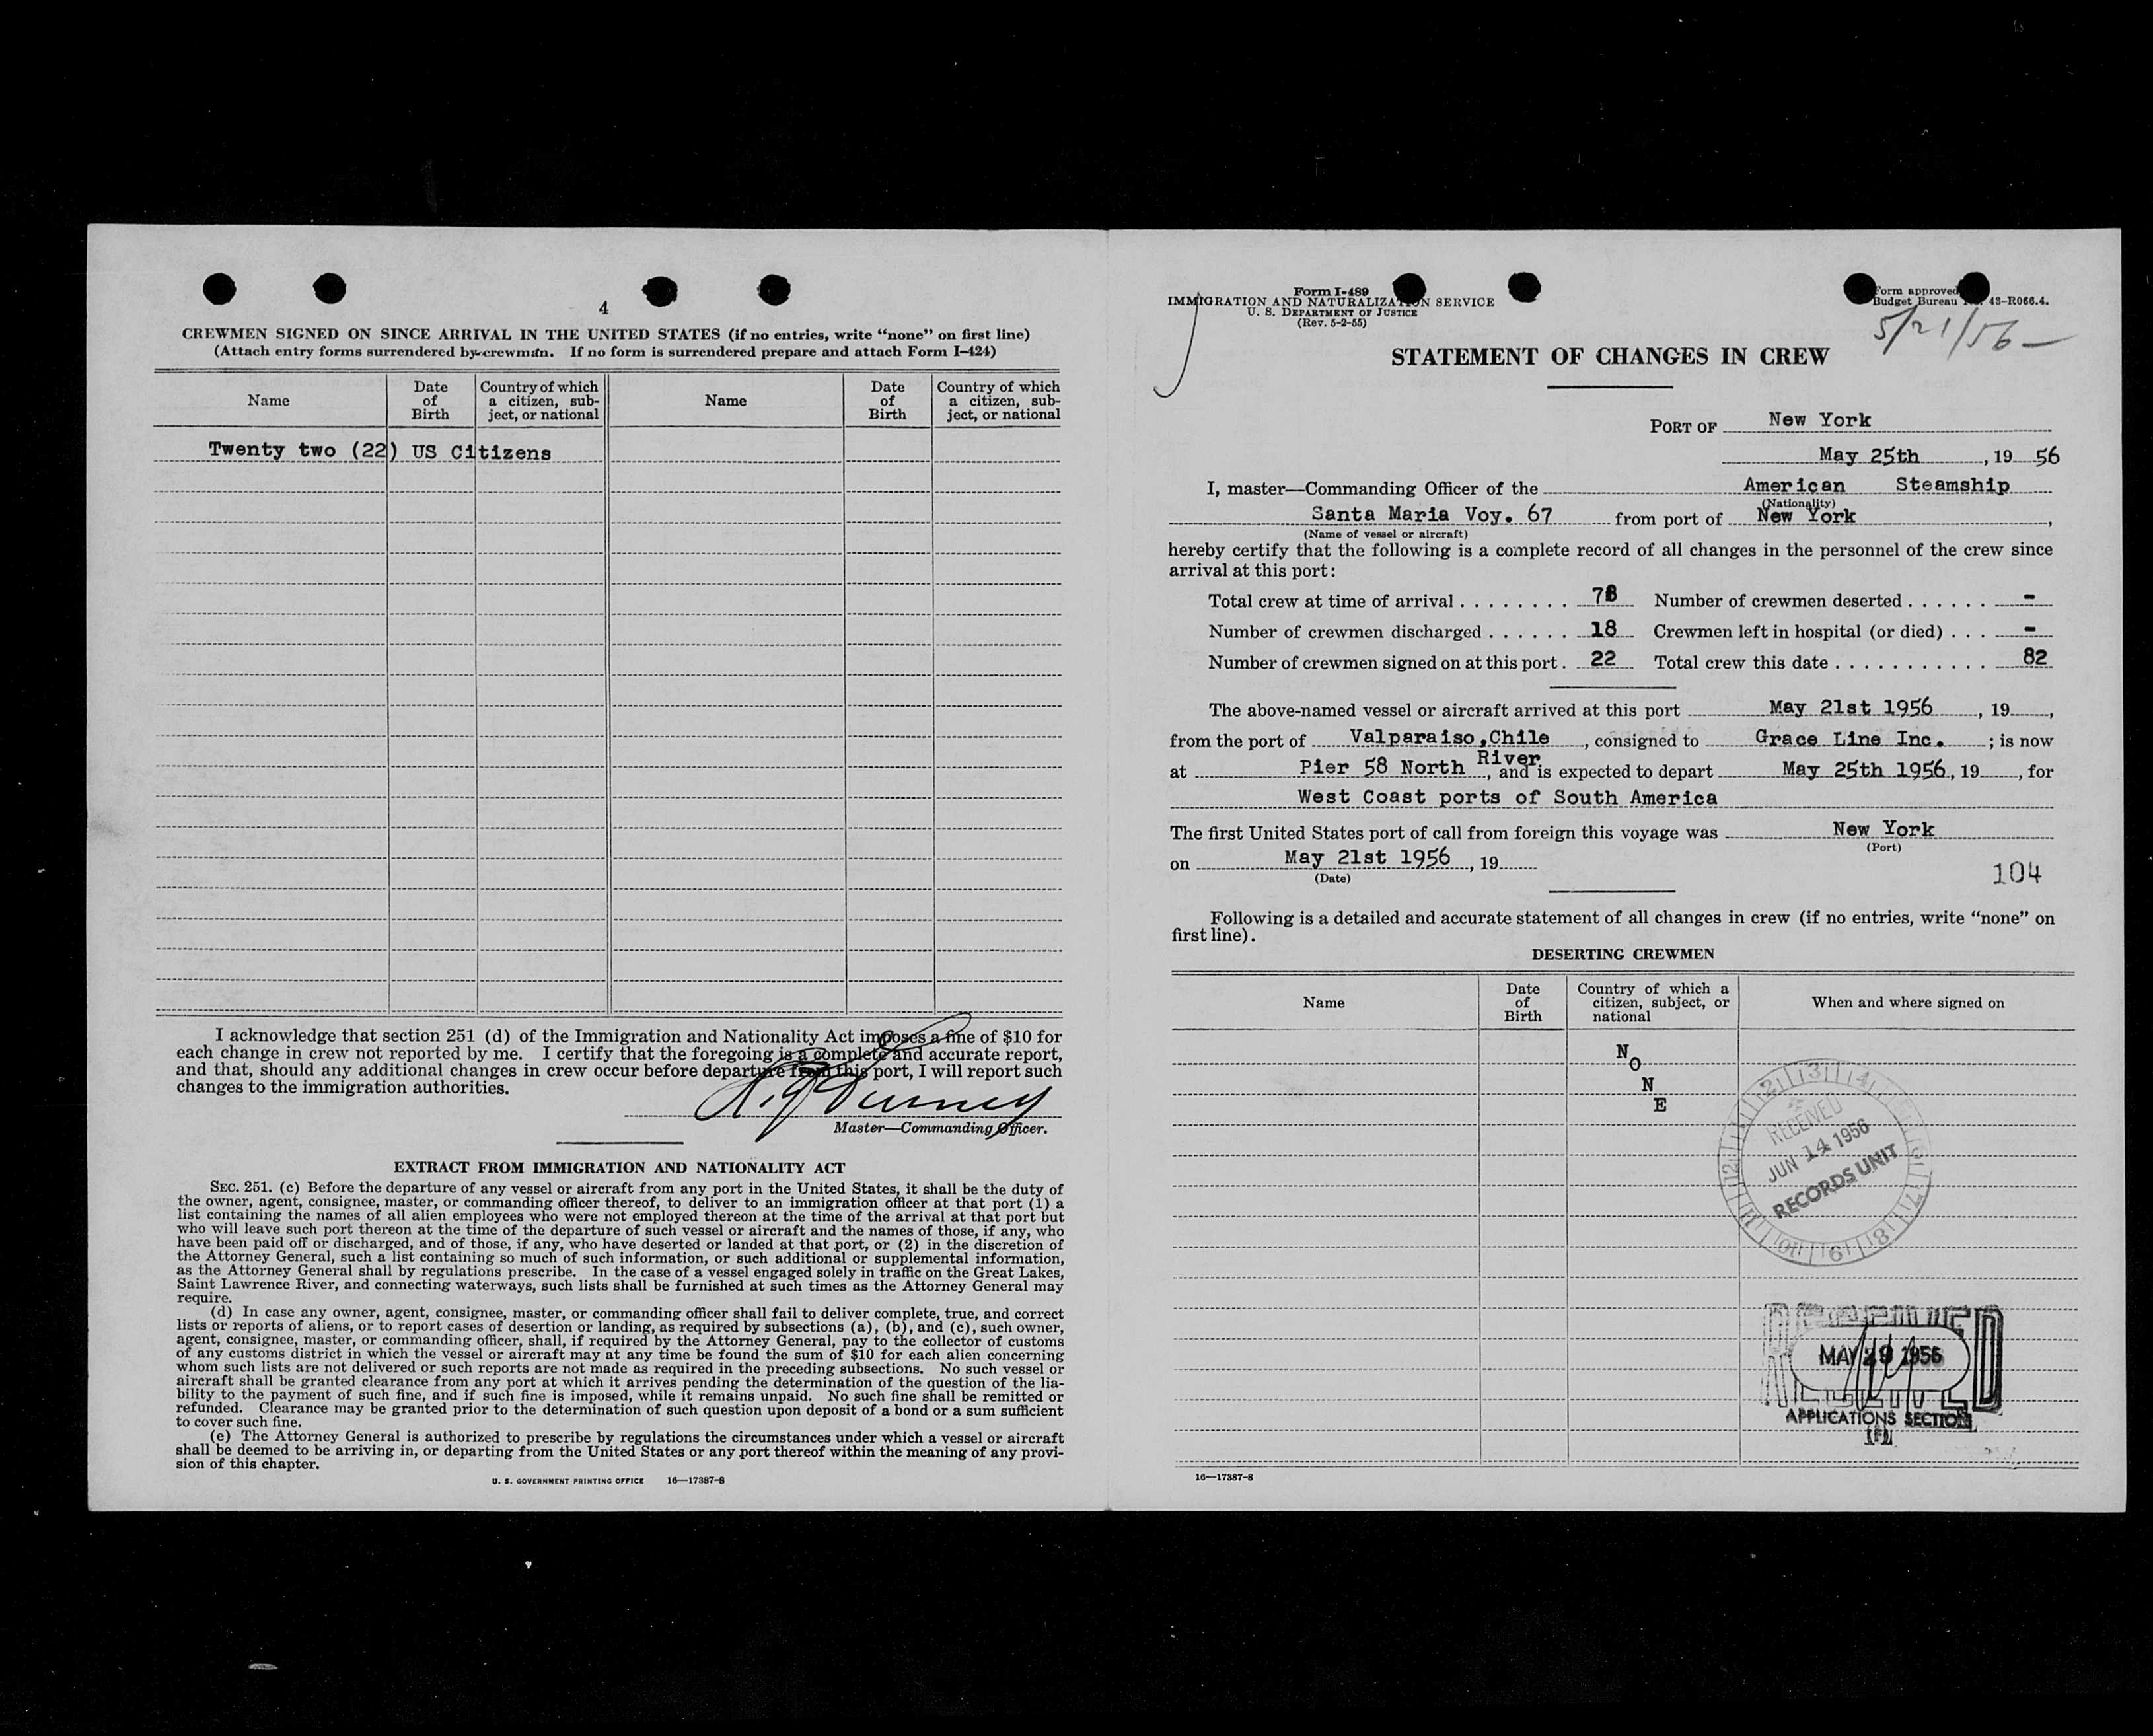 4
CREWMEN SIGNED ON SINCE ARRIVAL IN THE UNITED STATES (if no entries, write “none” on first line)
(Attach entry forms surrendered by crewman. If no form is surrendered prepare and attach Form I–424)
Name
Date of Birth
Country of which a citizen, sub-ject, or national
Name
Date of Birth
Country of which a citizen, sub-ject, or national
Twenty two (22) US Citizens
I acknowledge that section 251 (d) of the Immigration and Nationality Act imposes a fine of $10 for
each change in crew not reported by me. I certify that the foregoing is a complete and accurate report,
and that, should any additional changes in crew occur before departure from this port, I will report such
changes to the immigration authorities.
Master—Commanding Officer.
EXTRACT FROM IMMIGRATION AND NATIONALITY ACT
SEC. 251. (c) Before the departure of any vessel or aircraft from any port in the United States, it shall be the duty of
the owner, agent, consignee, master, or commanding officer thereof, to deliver to an immigration officer at that port (1) a
list containing the names of all alien employees who were not employed thereon at the time of the arrival at that port but
who will leave such port thereon at the time of the departure of such vessel or aircraft and the names of those, if any, who
have been paid off or discharged, and of those, if any, who have deserted or landed at that port, or (2) in the discretion of
the Attorney General, such a list containing so much of such information, or such additional or supplemental information,
as the Attorney General shall by regulations prescribe. In the case of a vessel engaged solely in traffic on the Great Lakes,
Saint Lawrence River, and connecting waterways, such lists shall be furnished at such times as the Attorney General may
require.
(d) In case any owner, agent, consignee, master, or commanding officer shall fail to deliver complete, true, and correct
lists or reports of aliens, or to report cases of desertion or landing, as required by subsections (a), (b), and (c), such owner,
agent, consignee, master, or commanding officer, shall, if required by the Attorney General, pay to the collector of customs
of any customs district in which the vessel or aircraft may at any time be found the sum of $10 for each alien concerning
whom such lists are not delivered or such reports are not made as required in the preceding subsections. No such vessel or
aircraft shall be granted clearance from any port at which it arrives pending the determination of the question of the lia-
bility to the payment of such fine, and if such fine is imposed, while it remains unpaid. No such fine shall be remitted or
refunded. Clearance may be granted prior to the determination of such question upon deposit of a bond or a sum sufficient
to cover such fine.
(e) The Attorney General is authorized to prescribe by regulations the circumstances under which a vessel or aircraft
shall be deemed to be arriving in, or departing from the United States or any port thereof within the meaning of any provi-
sion of this chapter.
U. S. GOVERNMENT PRINTING OFFICE 16—17387-8
Form I-489
IMMIGRATION AND NATURALIZATION SERVICE
U. S. DEPARTMENT OF JUSTICE
(Rev. 5-2-55)
Form approved
Budget Bureau No. 43–R066.4.
5/21/56 —
STATEMENT OF CHANGES IN CREW
PORT OF New York
May 25th, 19 56
I, master—Commanding Officer of the American Steamship
(Nationality)
Santa Maria Voy. 67 from port of New York,
(Name of vessel or aircraft)
hereby certify that the following is a complete record of all changes in the personnel of the crew since
arrival at this port:
Total crew at time of arrival 78 Number of crewmen deserted -
Number of crewmen discharged 18 Crewmen left in hospital (or died) -
Number of crewmen signed on at this port 22 Total crew this date 82
The above-named vessel or aircraft arrived at this port May 21st 1956, 19,
from the port of Valparaiso,Chile, consigned to Grace Line Inc. ; is now
at Pier 58 North River, and is expected to depart May 25th 1956, 19, for
West Coast ports of South America
The first United States port of call from foreign this voyage was New York
(Port)
on May 21st 1956, 19
(Date)
104
Following is a detailed and accurate statement of all changes in crew (if no entries, write “none” on
first line).
DESERTING CREWMEN
Name
Date of Birth
Country of which a citizen, subject, or national
When and where signed on
NONE
RECEIVED
JUN 14 1956
RECORDS UNIT
RECEIVED
MAY 29 1956
APPLICATIONS SECTION
16—17387-8